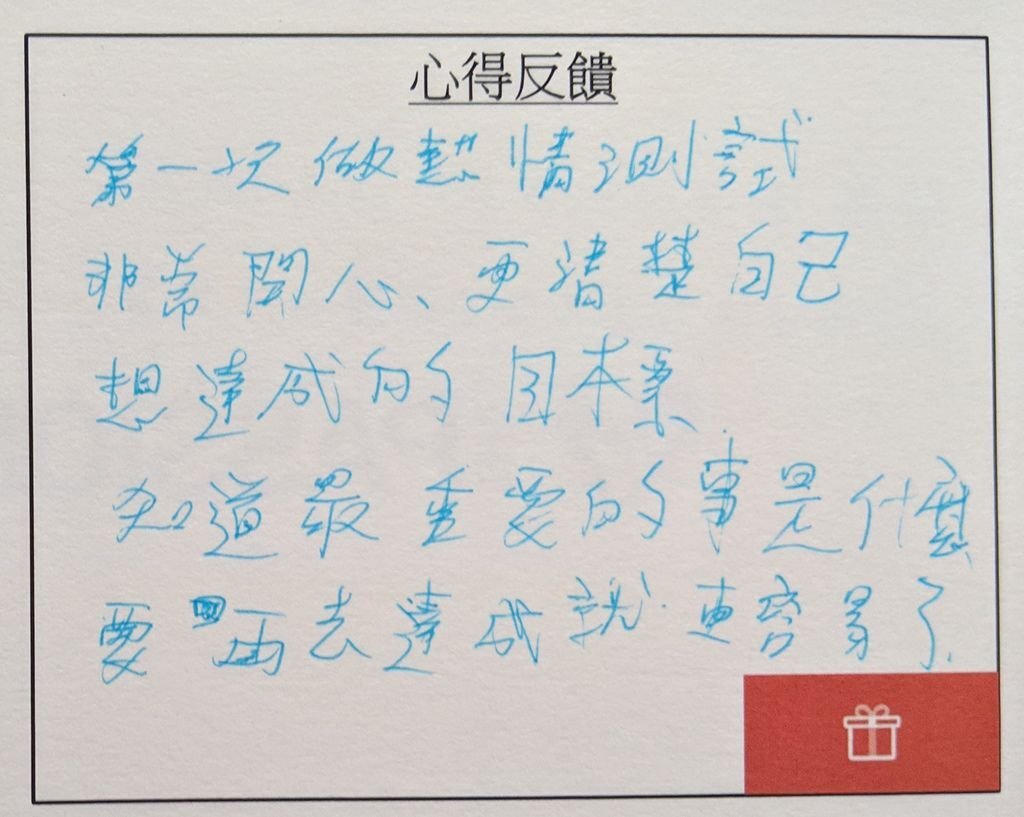 心得反饋
第一次做熱情測試
非常開心、更清楚自己
想達成的目標
知道最重要的事是什麼
要再去達成就更容易了